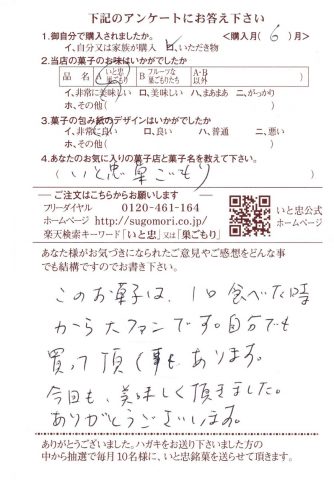 下記のアンケートにお答え下さい
1.御自分で購入されましたか。 <購入月( 6 )月>
イ、自分又は家族が購入 ロ、いただき物
2.当店の菓子のお味はいかがでしたか
品 名 A いと忠 巣ごもり B フルーツな 巣ごもりたち A・B 以外
イ、非常に美味しい ロ、美味しい ハ、まあまあ ニ、がっかり
ホ、その他( )
3.菓子の包み紙のデザインはいかがでしたか
イ、非常に良い ロ、良い ハ、普通 ニ、悪い
ホ、その他( )
4.あなたのお気に入りの菓子店と菓子名を教えて下さい。
( いと忠 巣ごもり )
ご注文はこちらからお願いします
フリーダイヤル 0120-461-164
ホームページ http://sugomori.co.jp/
楽天検索キーワード「いと忠」又は「巣ごもり」
いと忠公式
ホームページ
あなた様がお気づきになられたご意見やご感想をどんな事
でも結構ですのでお書き下さい。
このお菓子は、1口食べた時
から大ファンです。自分でも
買って頂く事もあります。
今回も、美味しく頂きました。
ありがとうございます。
ありがとうございました。ハガキをお送り下さいました方の
中から抽選で毎月10名様に、いと忠銘菓を送らせて頂きます。